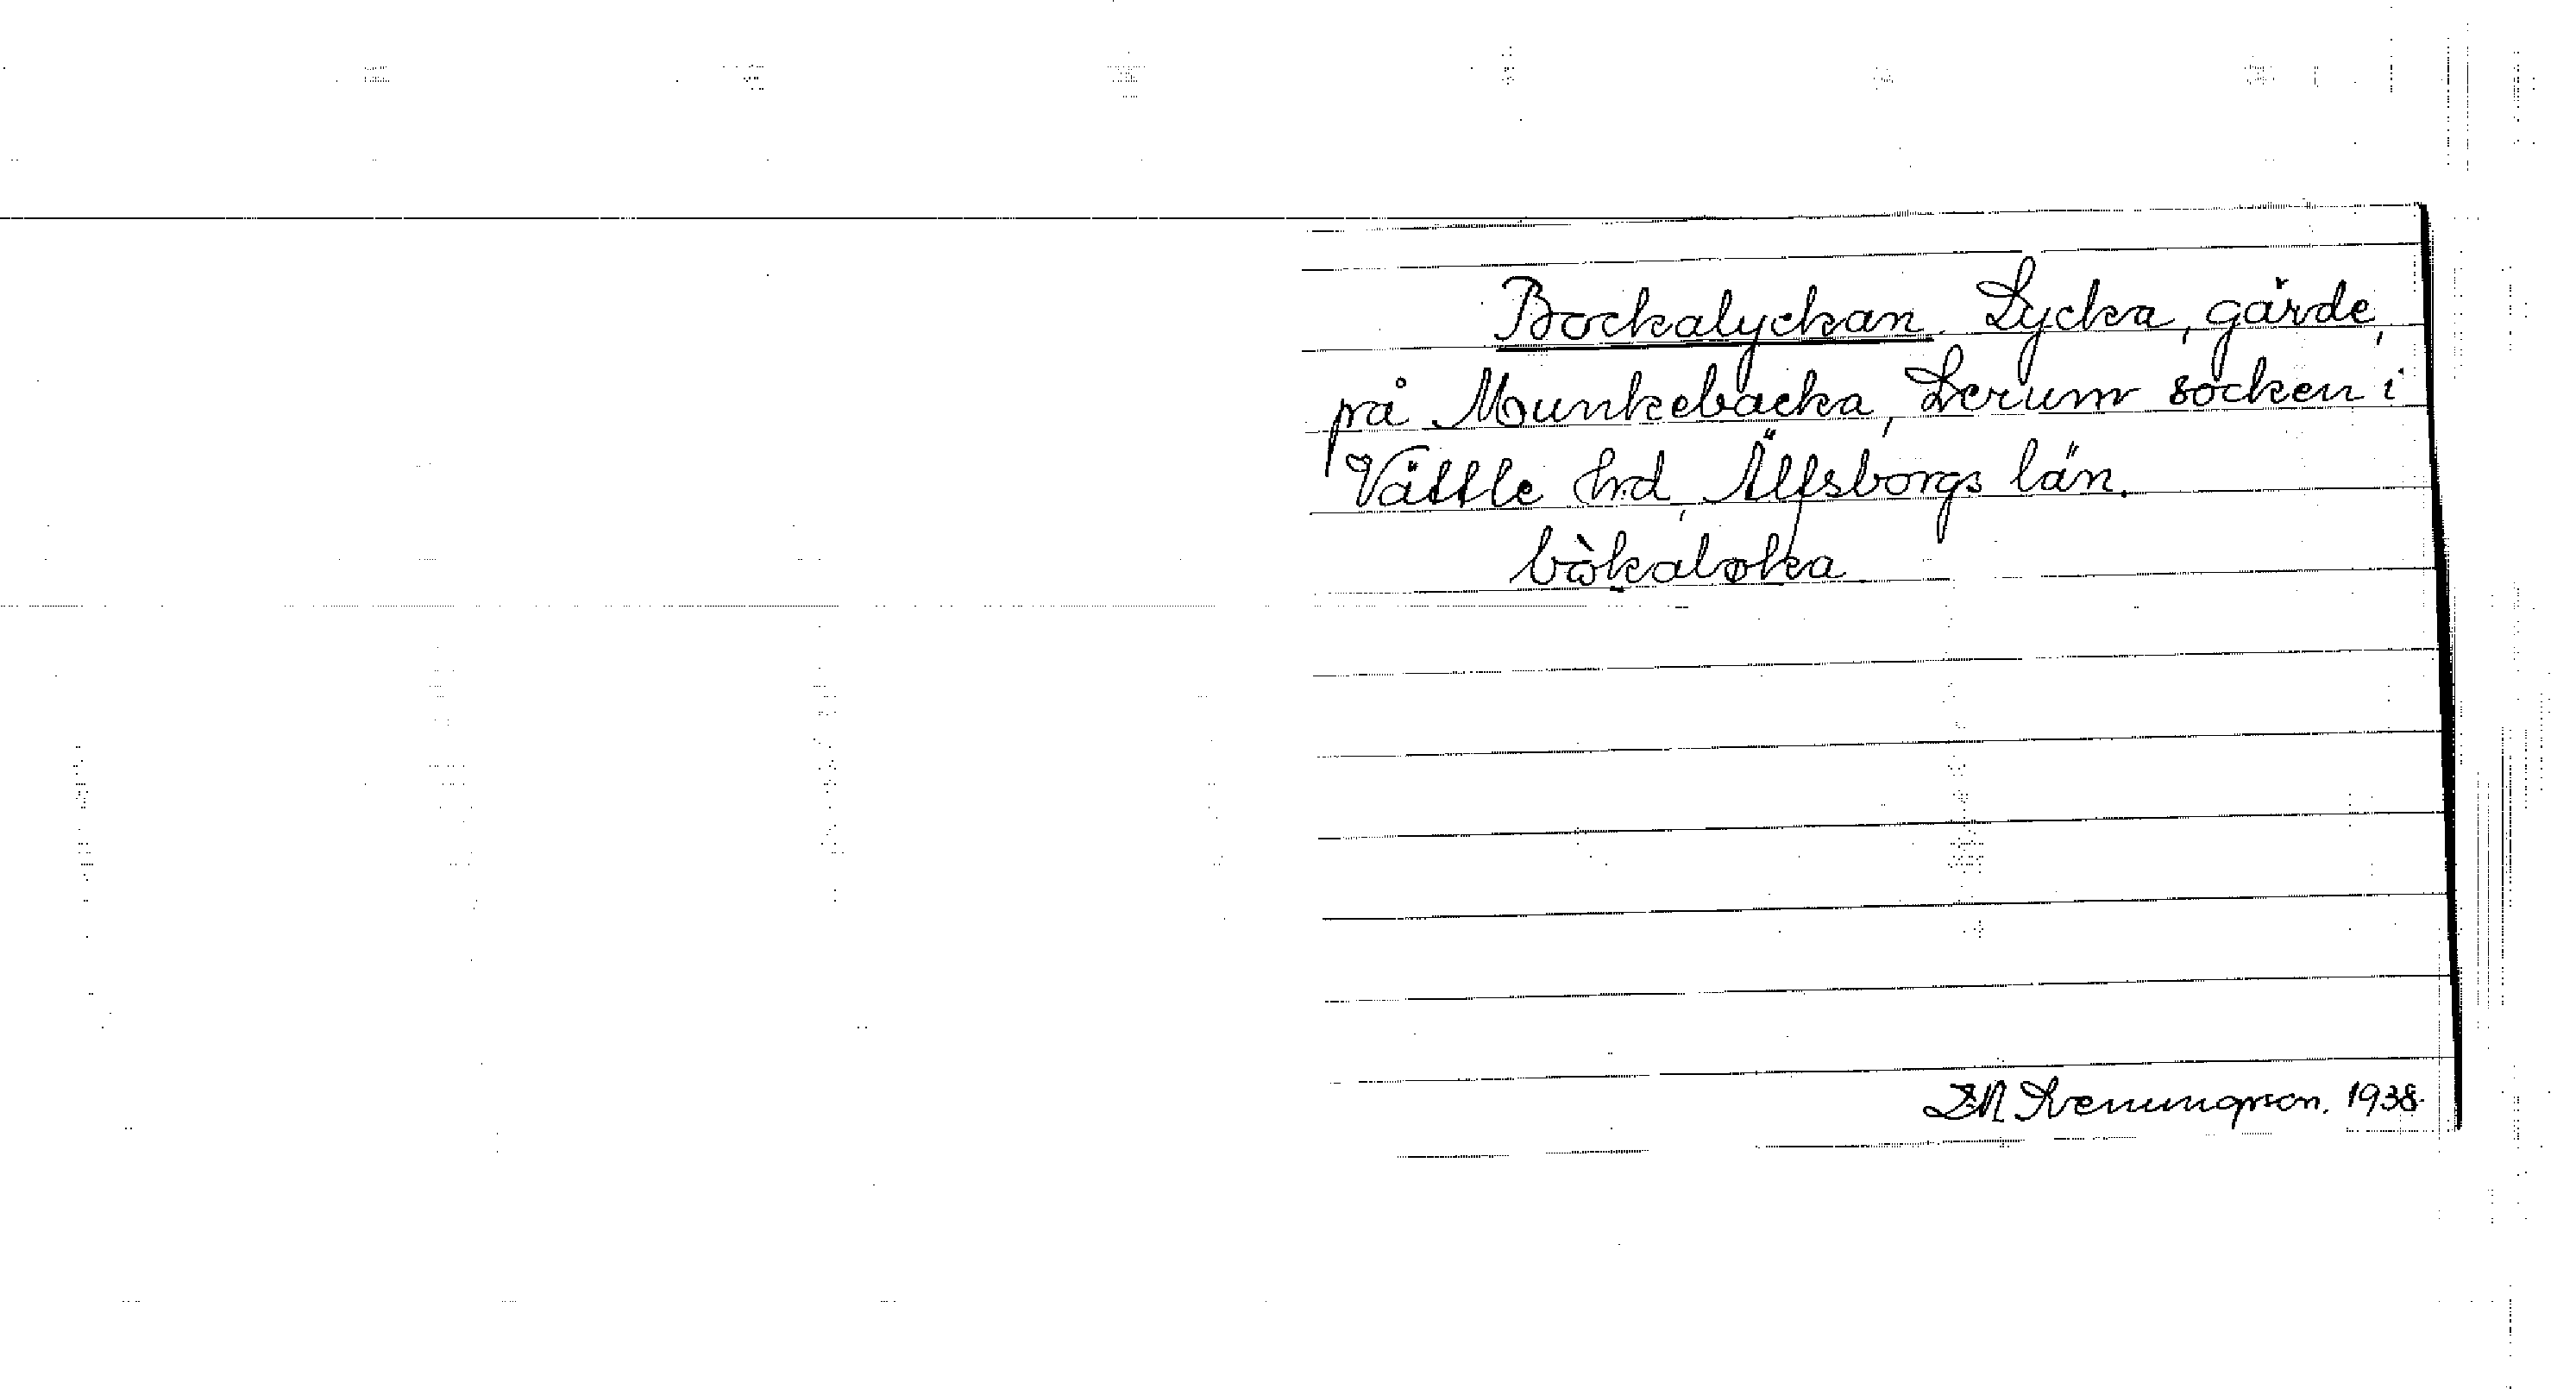 Bockalyckan. Lycka, gärde,
på Munkebacka, Lerum socken i
Vättle hrd, Älfsborgs län.
bòkaløka
1938.